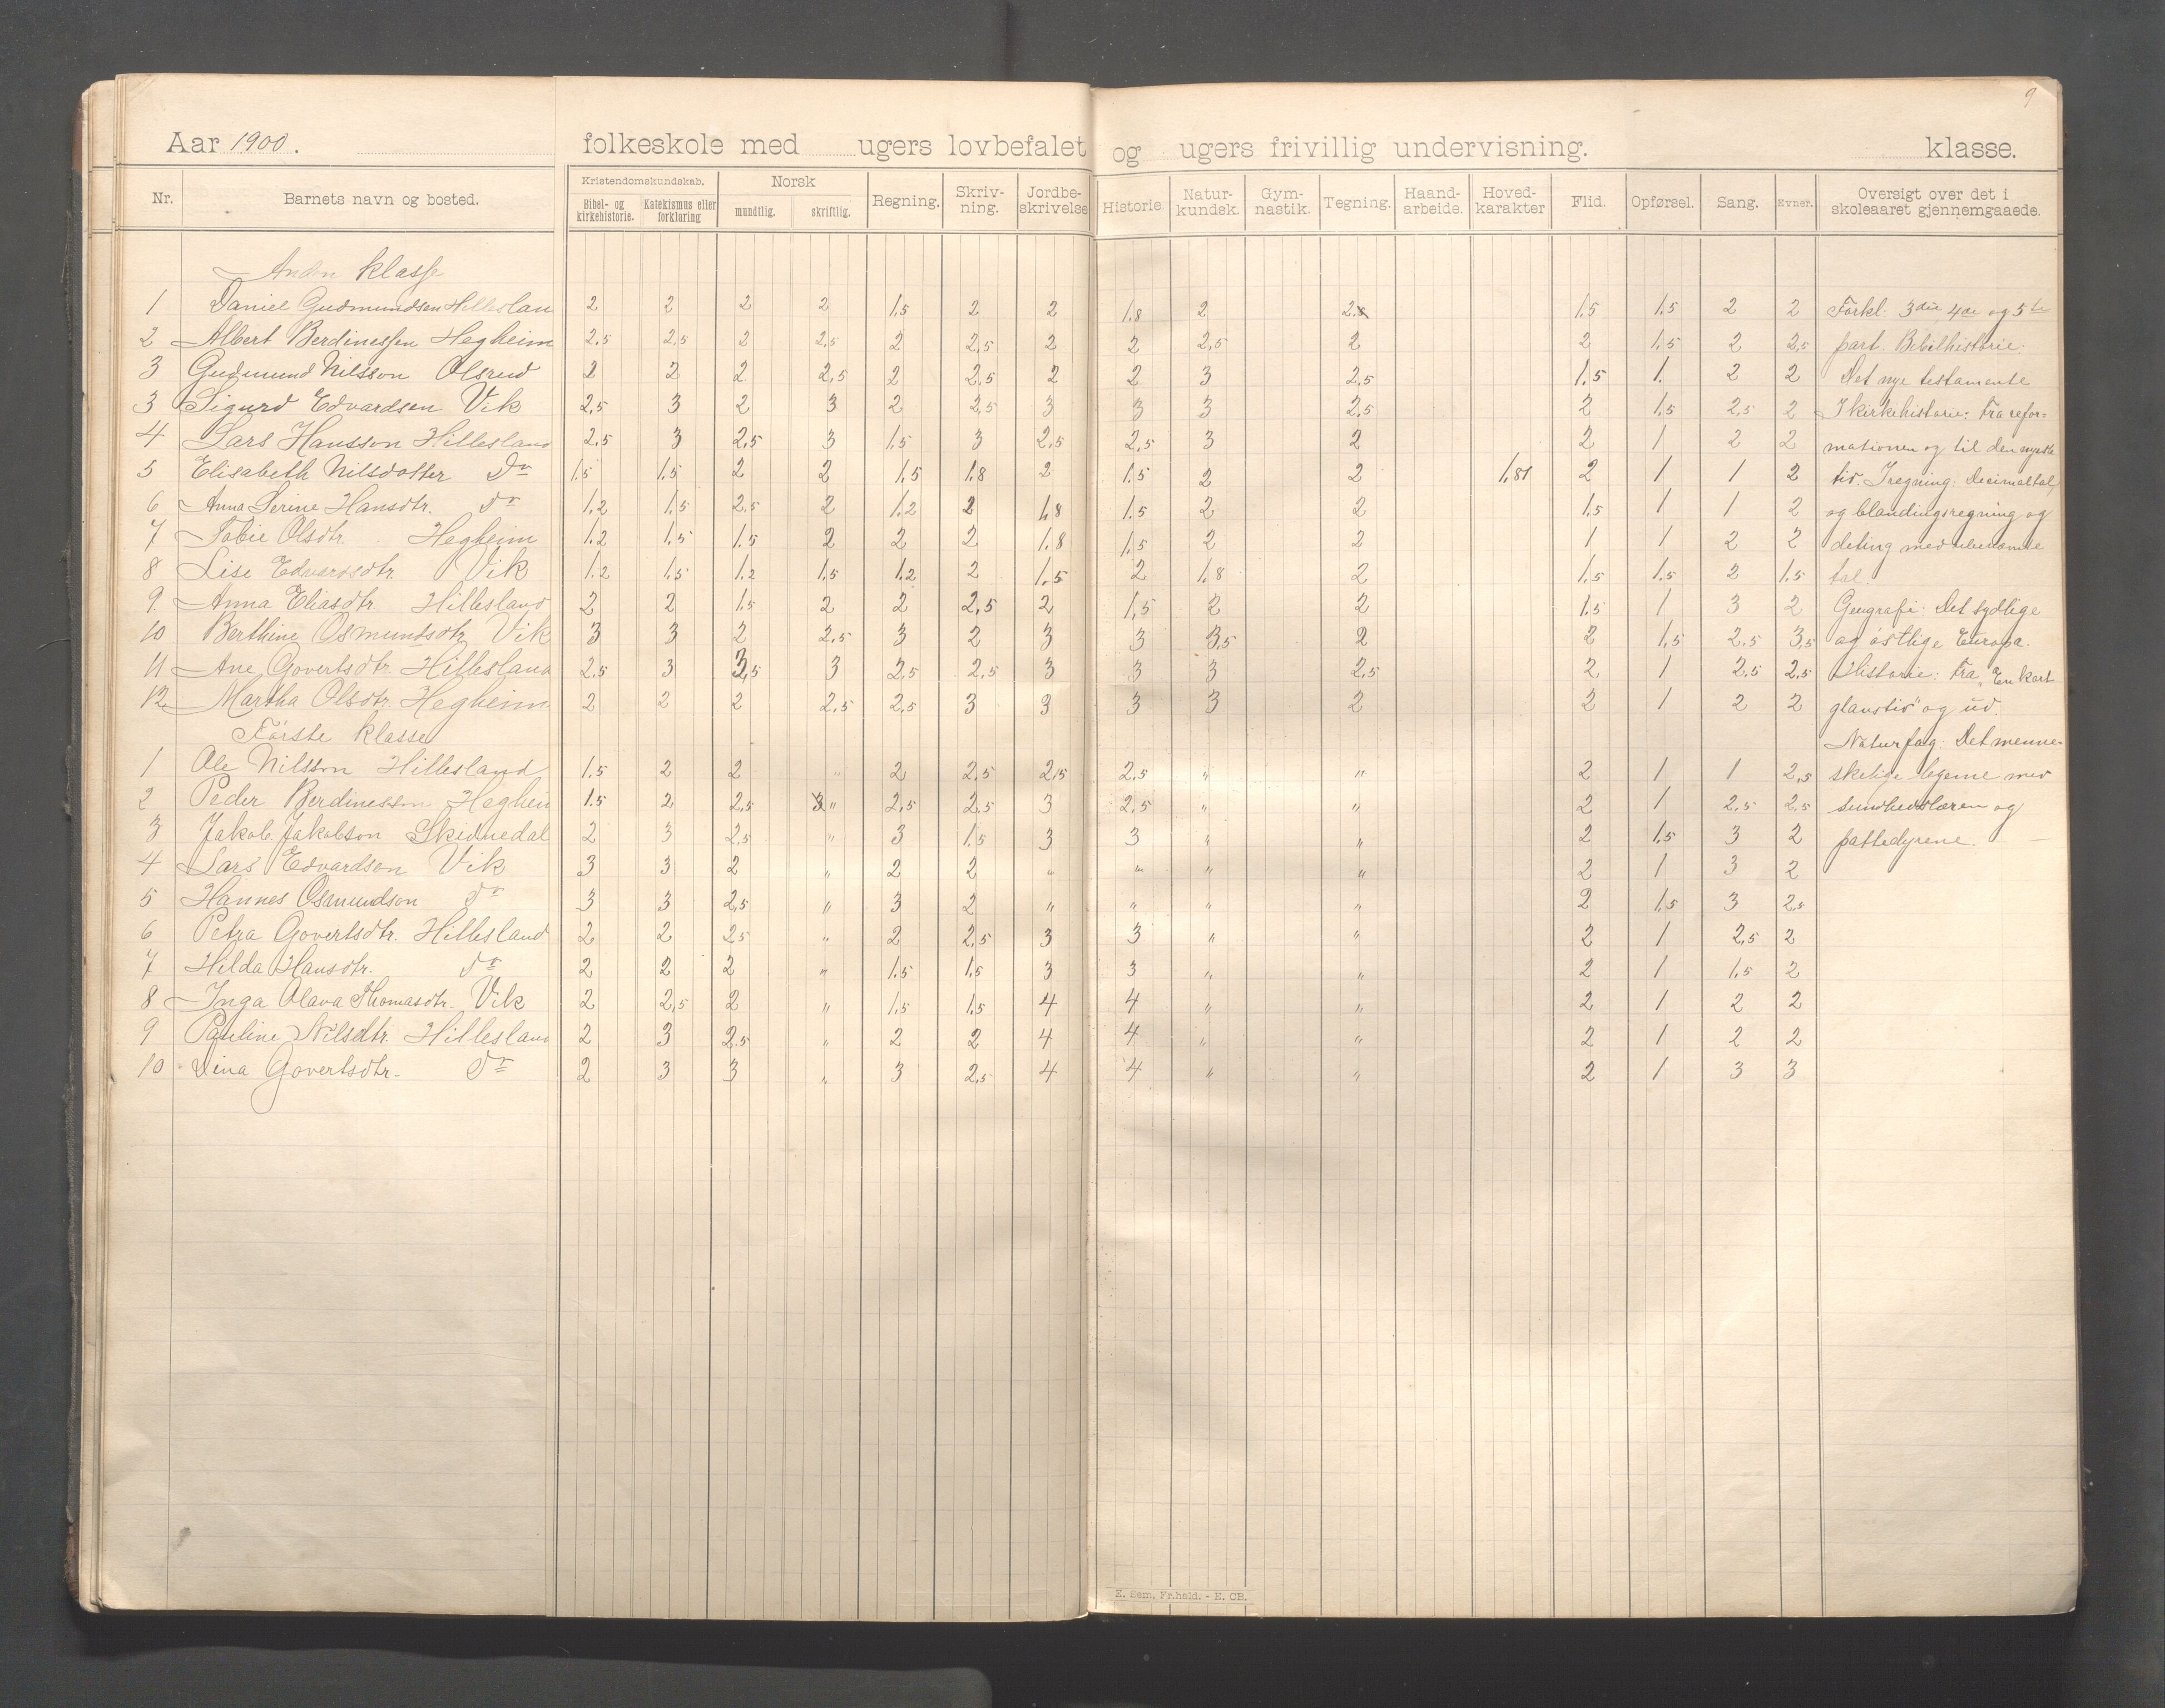 9
Aar 1900. folkeskole med ugers lovbefalet og ugers frivillig undervisning. klasse.
Nr. Barnets navn og bosted. Kristendomskundskab. Bibel- og kirkehistorie. Katekismus eller forklaring Norsk mundtlig. skriftlig. Regning. Skriv-ning. Jordbe-skrivelse Historie. Natur-kundsk. Gym-nastik. Tegning. Haand-arbeide. Hoved-karakter Flid. Opførsel. Sang. Evner. Oversigt over det i skoleaaret gjennemgaaede.
Anden klasse
1 Daniel Gudmundsen Hilleslan 2 2 2 2 1,5 2 2 1,8 2 2 1,5 1,5 2 2 Forkl: 3die, 4de og 5te
2 Albert Berdinessen Hegheim 2,5 2,5 2 2,5 2 2,5 2 2 2,5 2 2 1,5 2 2,5 part. Bibilhistorie:
3 Gudmund Nilsson Olsrud 2 2 2 2,5 2 2,5 2 2 3 2,5 1,5 1. 2 2 Det nye testamente
3 Sigurd Edvardsen Vik 2,5 3 2 3 2 2,5 3 3 3 2,5 2 1,5 2,5 2 I kirkehistorie: Fra refor=
4 Lars Hansson Hillesland 2,5 3 2,5 3 1,5 3 2,5 2,5 3 2 2 1 2 2 mationen og til den nyeste
5 Elisabeth Nilsdotter Do 1,5 1,5 2 2 1,5 1,8 2 1,5 2 2 1,81 2 1 1 2 tid. I regning: Decimaltal,
6 Anna Serine Hansdtr. do 1,2 1,5 2,5 2 1,2 2 1,8 1,5 2 2 1,5 1 1 2 og blandingsregning og
7 Tobie Olsdtr. Hegheim 1,2 1,5 1,5 2 2 2 1,8 1,5 2 2 1 1 2 2 deling med ubenævnte
8 Lise Edvardsdtr. Vik 1,2 1,5 1,2 1,5 1,2 2 1,5 2 1,8 2 1,5 1,5 2 1,5 tal.
9. Anna Eliasdtr. Hillesland 2 2 1,5 2 2 2,5 2 1,5 2 2 1,5 1 3 2 Geografi: Det sydlige
10 Berthine Osmundsdtr. Vik 3 3 2 2,5 3 2 3 3 3,5 2 2 1,5 2,5 3,5 og østlige Europa.
11 Ane Govertsdtr. Hillesland 2,5 3 3,5 3 2,5 2,5 3 3 3 2,5 2 1 2,5 2,5 Historie: Fra „En kort
12 Martha Olsdtr. Hegheim 2 2 2 2,5 2,5 3 3 3 3 2 2 1 2 2 glanstid" og ud.
Første klasse Naturfag: Det menne-
1 Ole Nilsson Hillesland 1,5 2 2 " 2 2,5 2,5 2,5 " " 2 1 1 2,5 skelige legeme med
2 Peder Berdinesson Heghei 1,5 2 2,5 3 " 2,5 2,5 3 2,5 " " 2 1 2,5 2,5 sundhedslæren og
3 Jakob Jakobson Skednedal 2 3 2,5 " 3 1,5 3 3 " " 2 1,5 3 2 pattedyrene. —
4 Lars Edvardson Vik 3 3 2 " 2 2 " " " " 2 1 3 2
5 Hannes Osmundson do 3 3 2,5 " 3 2 " " " " 2 1,5 3 2,5
6 Petra Govertsdtr. Hillesland 2 2 2,5 " 2 2,5 3 3 " " 2 1 2,5 2
7 Hilda Hansdtr. do 2 2 2 " 1,5 1,5 3 3 " " 2 1 1,5 2
8 Inga Olava Thomasdtr. Vik 2 2,5 2 " 1,5 1,5 4 4 " " 2 1 2 2
9 Pauline Nilsdtr. Hillesland 2 3 2,5 " 2 2 4 4 " " 2 1 2 2
10 Dina Govertsdtr. do 2 3 3 " 3 2,5 4 4 " " 2 1 3 3
E. Sem, Fr.hald. - E. CB.